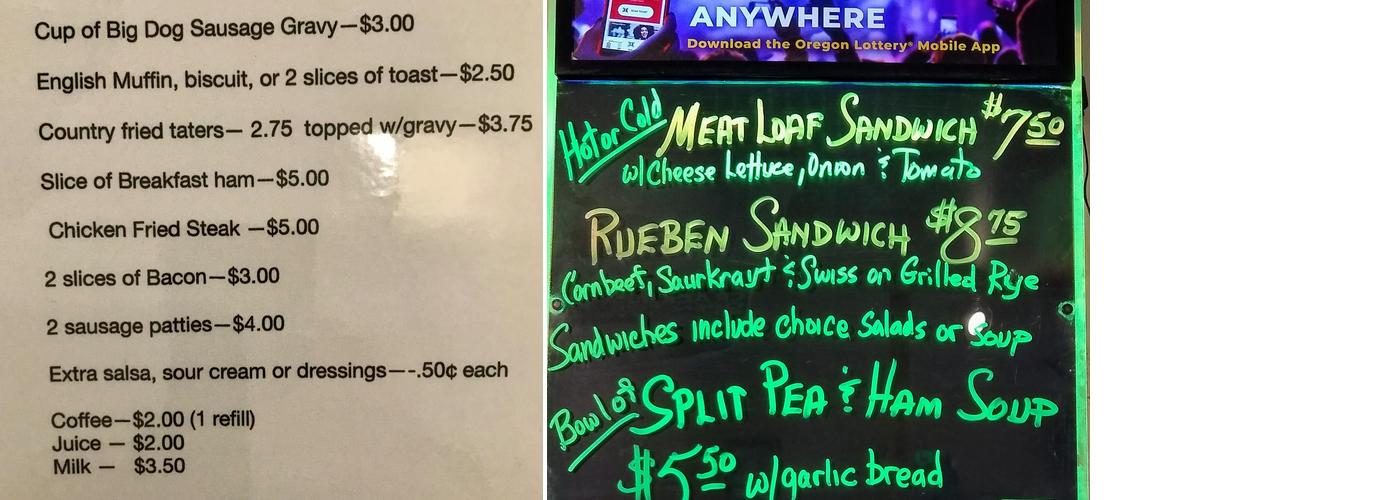 Cup of Big Dog Sausage Gravy—$3.00
English Muffin, biscuit, or 2 slices of toast—$2.50
Country fried taters— 2.75 topped w/gravy—$3.75
Slice of Breakfast ham—$5.00
Chicken Fried Steak —$5.00
2 slices of Bacon—$3.00
2 sausage patties—$4.00
Extra salsa, sour cream or dressings—-.50¢ each
Coffee—$2.00 (1 refill)
Juice — $2.00
Milk — $3.50
ANYWHERE
Download the Oregon Lottery® Mobile App
Hot or Cold MEAT LOAF SANDWICH $7.50
w/Cheese Lettuce, Onion & Tomato
RUEBEN SANDWICH $8.75
Cornbeef, Saurkrayt & Swiss on Grilled Rye
Sandwiches include choice Salads or Soup
Bowl of SPLIT PEA & HAM SOUP
$5.50 w/garlic bread